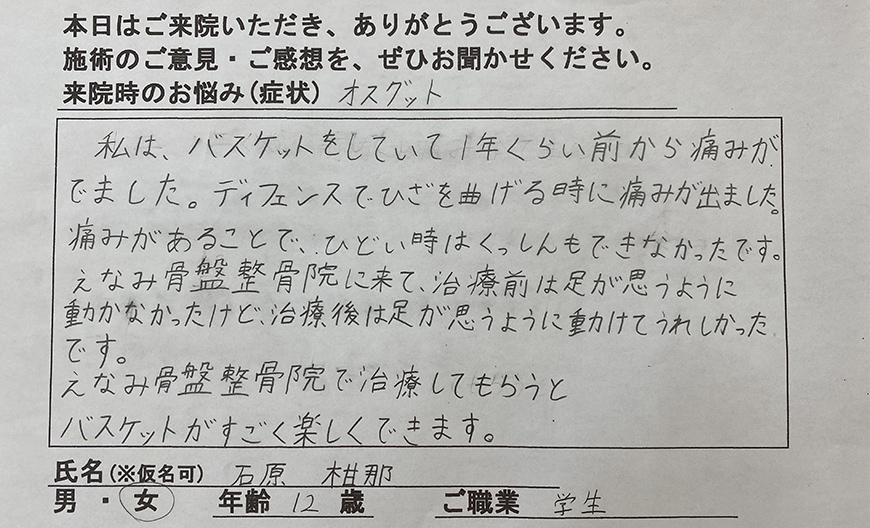 本日はご来院いただき、ありがとうございます。
施術のご意見・ご感想を、ぜひお聞かせください。
来院時のお悩み(症状) オスグット
私は、バスケットをしていて1年くらい前から痛みが
でました。ディフェンスでひざを曲げる時に痛みが出ました。
痛みがあることで、ひどい時はくっしんもできなかったです。
えなみ骨盤整骨院に来て、治療前は足が思うように
動かなかったけど、治療後は足が思うように動けてうれしかった
です。
えなみ骨盤整骨院で治療してもらうと
バスケットがすごく楽しくできます。
氏名(※仮名可) 石原 柑那
男・女 年齢 12 歳 ご職業 学生